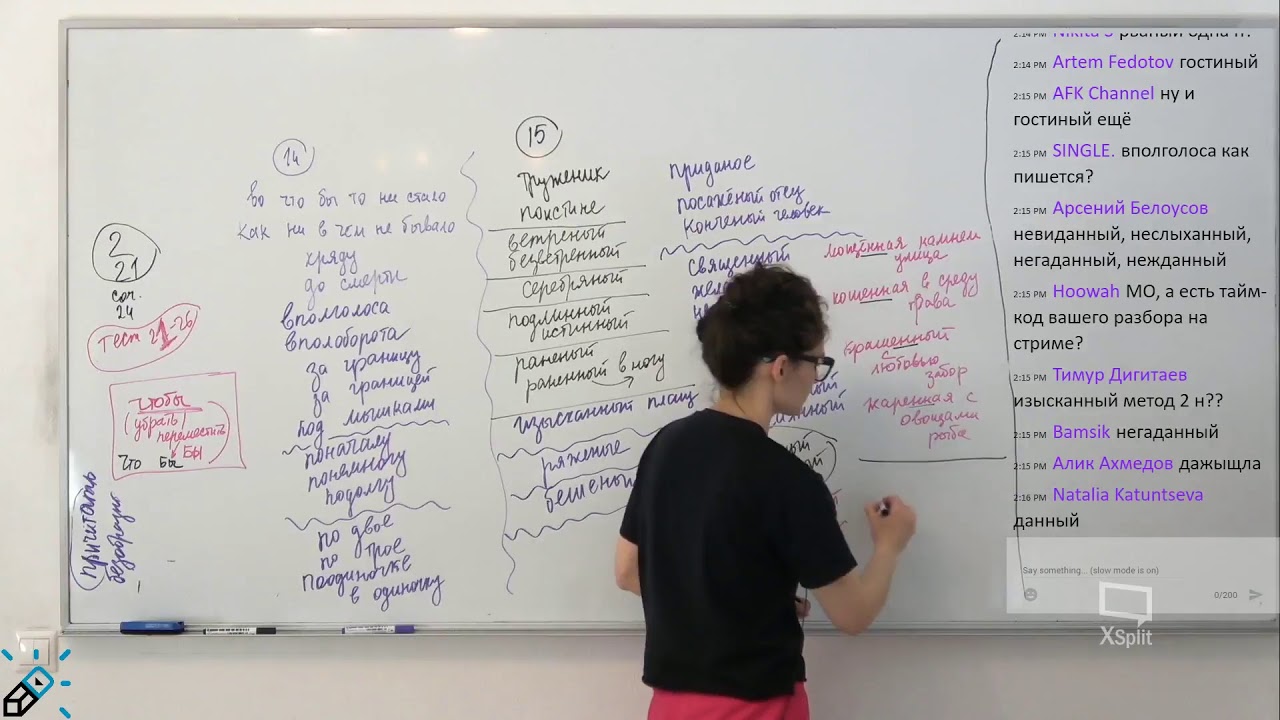 14
во что бы то ни стало
как ни в чем не бывало
до смерти
вполголоса
вполоборота
за границу
за границей
под мышками
поначалу
понемногу
подолгу
по двое
по трое
поодиночке
в одиночку
2
21
соч.
24
Тест 21-26
чтобы
(убрать
переместить)
БЫ
что бы
причитать
безобразие
15
труженик
поистине
ветреный
безветренный
серебряный
подлинный
истинный
раненый
раненный в ногу
изысканный плащ
ряженые
приданое
посажёный отец
конченый человек
священный
мощённая камнем
улица
кошенная в среду
трава
крашенный
любовью
забор
жаренная с
овощами
рыба
2:14 PM Nikita S рваный одна н?
2:14 PM Artem Fedotov гостиный
2:15 PM AFK Channel ну и
гостиный ещё
2:15 PM SINGLE. вполголоса как
пишется?
2:15 PM Арсений Белоусов
невиданный, неслыханный,
негаданный, нежданный
2:15 PM Hoowah МО, а есть тайм-
код вашего разбора на
стриме?
2:15 PM Тимур Дигитаев
изысканный метод 2 н??
2:15 PM Bamsik негаданный
2:15 PM Алик Ахмедов дажыщла
2:16 PM Natalia Katuntseva
данный
Say something... (slow mode is on)
0/200
XSplit